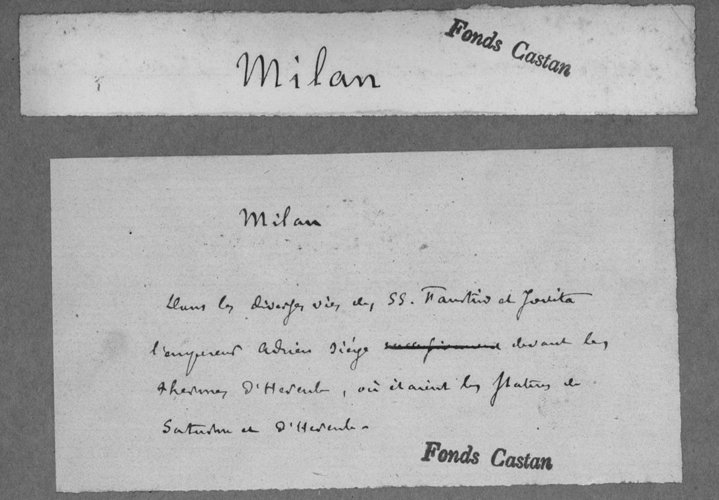 Milan
Fonds Castan
Milan
Dans les diverses vies des SS. Faustin et Jovita
l'empereur Adrien siége successivement devant les
thermes d'Hercule, où étaient les statues de
Saturne et d'Hercule.
Fonds Castan